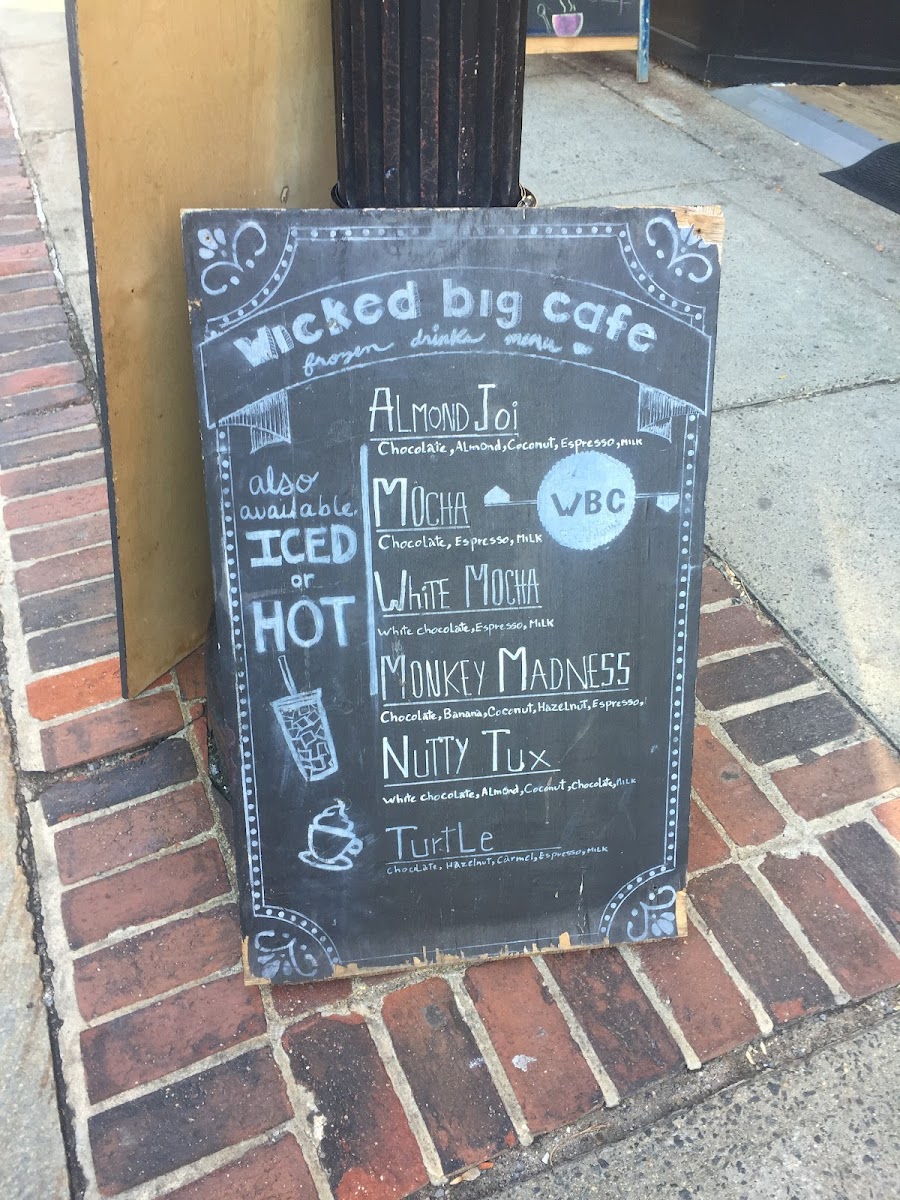 Wicked big cafe
frozen drinks menu
Almond Joi
Chocolate, Almond, Coconut, Espresso, Milk
also
available
ICED
or
HOT
Mocha
Chocolate, Espresso, Milk
WBC
White Mocha
White chocolate, Espresso, Milk
Monkey Madness
Chocolate, Banana, Coconut, Hazelnut, Espresso,
Nutty Tux
White chocolate, Almond, Coconut, Chocolate, Milk
Turtle
Chocolate, Hazelnut, Carmel, Espresso, Milk